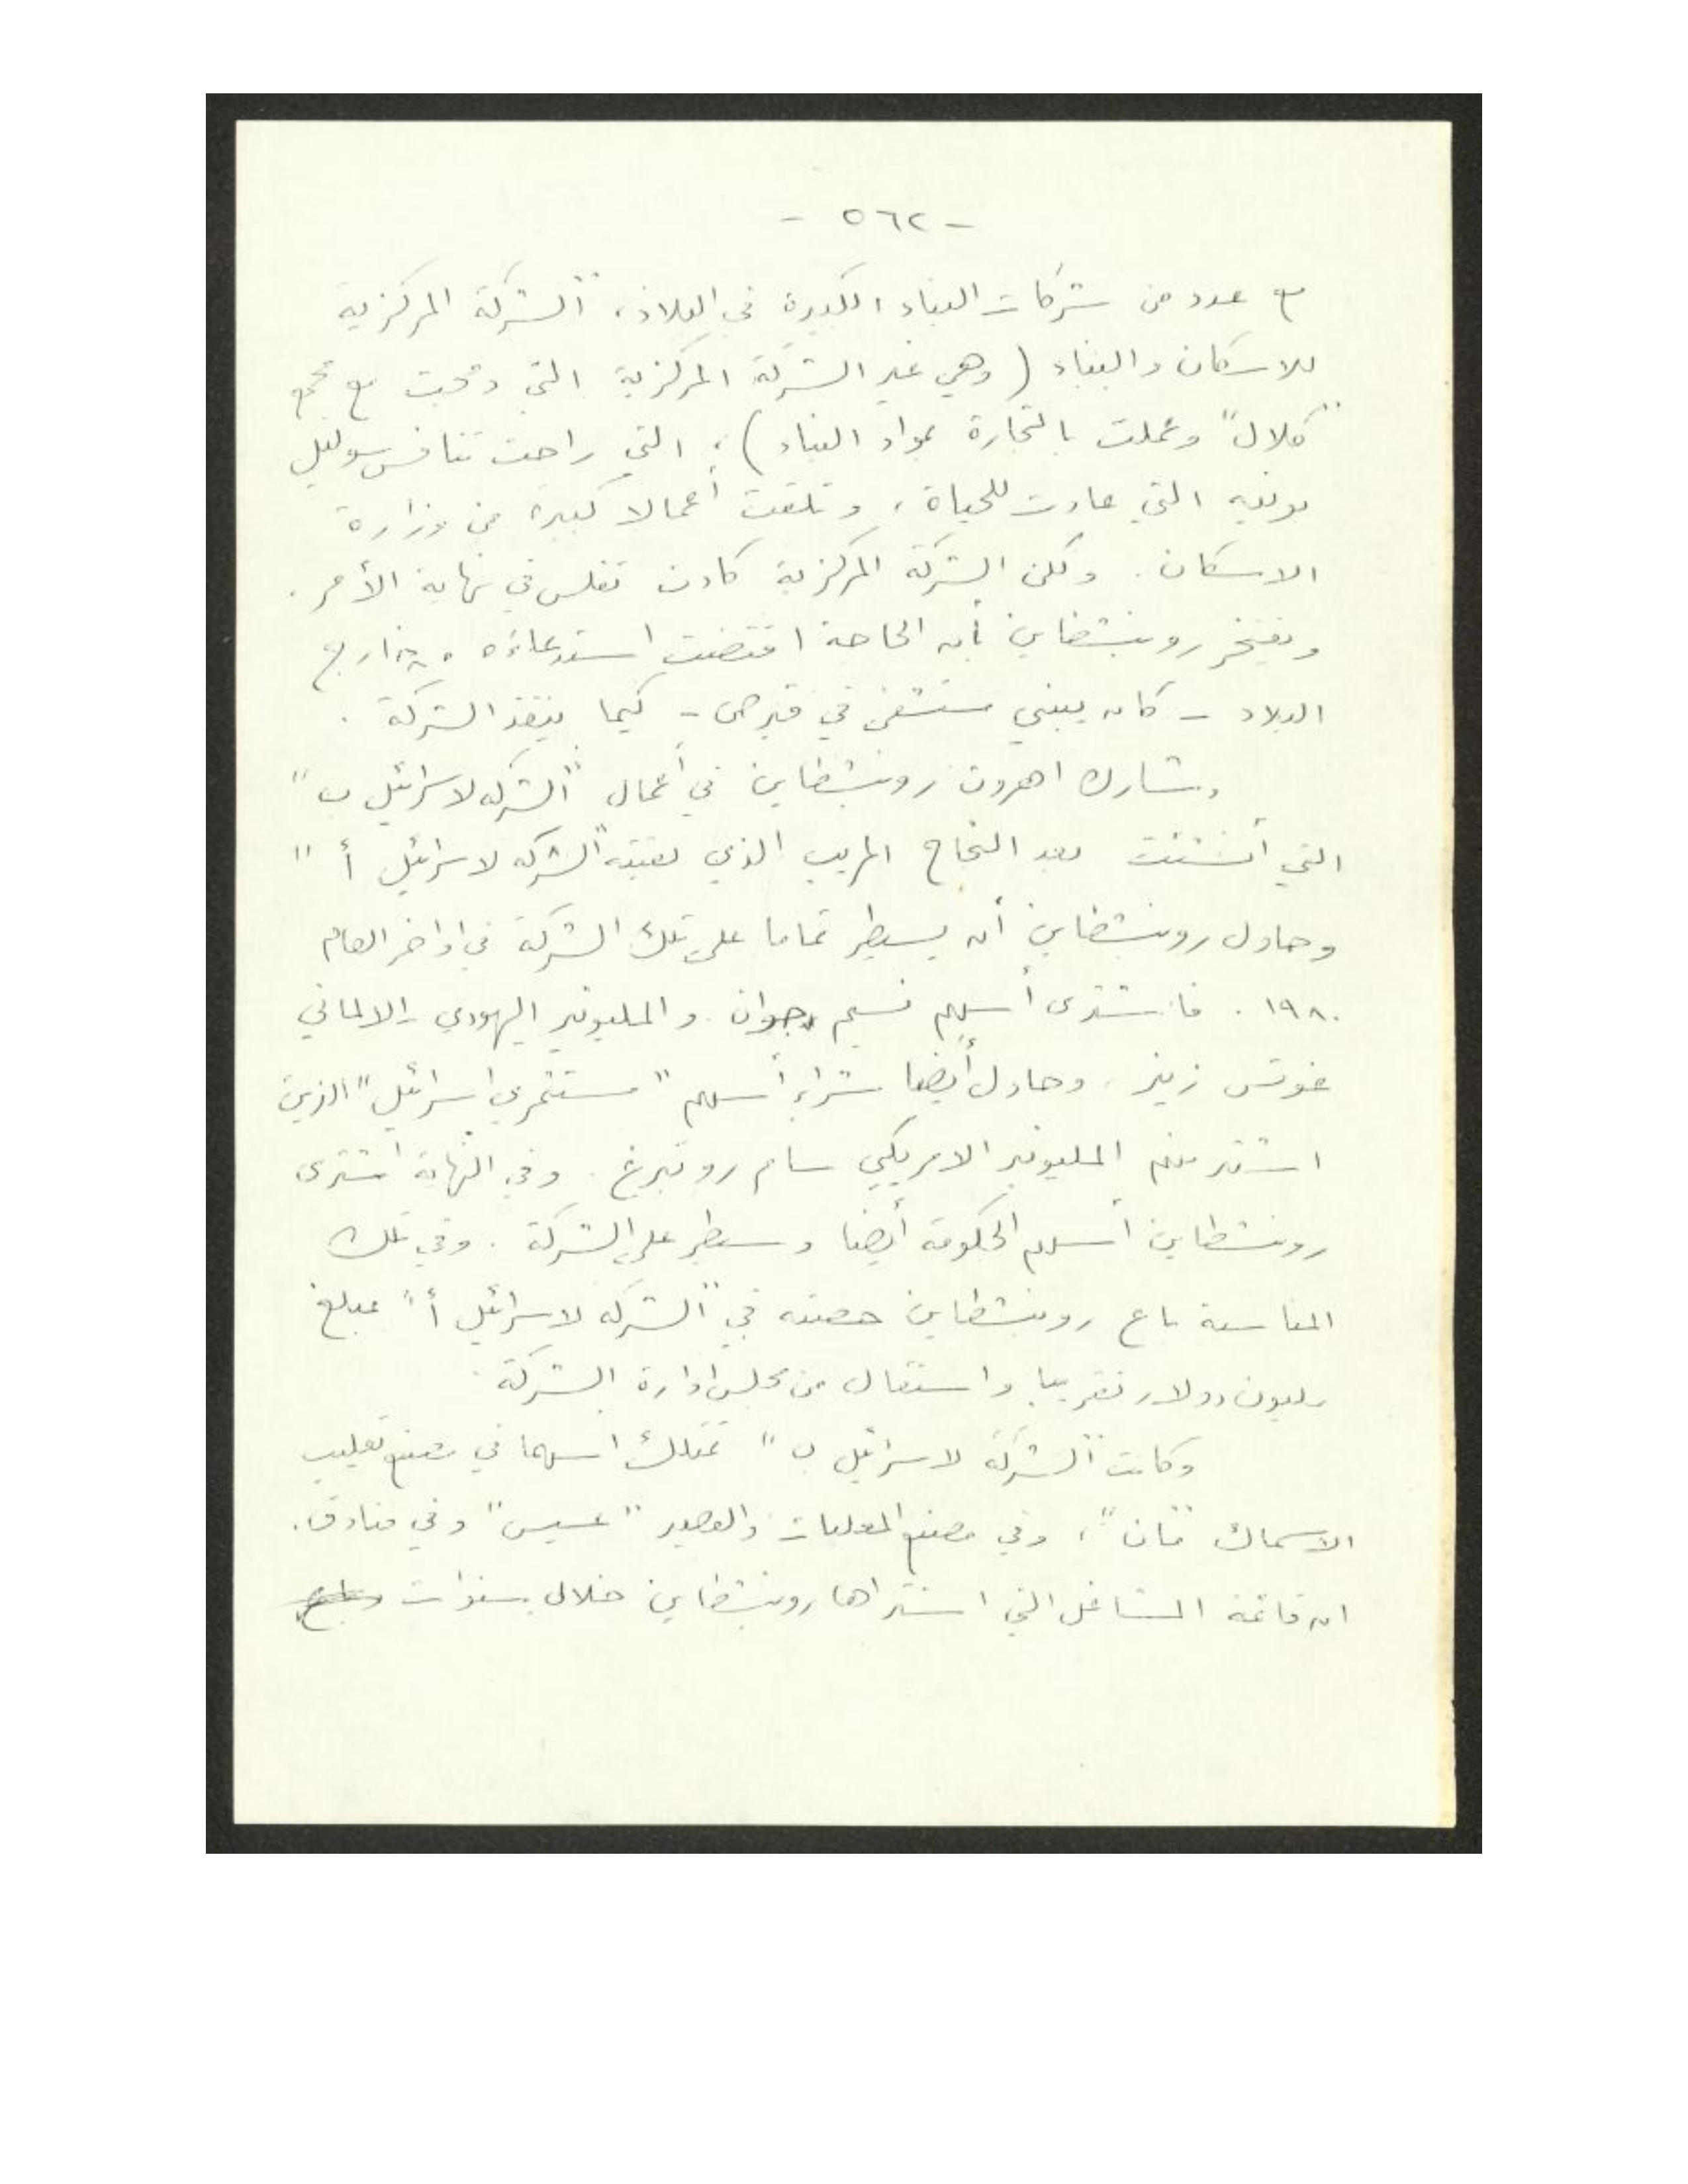 - ٥٦٢ -
مع عدد من شركات البناء الكبيرة في البلاد، "الشركة المركزية
للاسكان والبناء (وهي غير الشركة المركزية التي دمجت مع مجمع
"كلال" وعملت بالتجارة بمواد البناء)، التي راحت تنافس سوليل
بونيه التي عادت للحياة، وتلقت أعمالا كبيرة من وزارة
الاسكان. ولكن الشركة المركزية كادت تفلس في نهاية الأمر.
ويفتخر روبنشطاين بأن الحاجة اقتضت استدعاؤه من خارج
البلاد - كان يبني مستشفى في قبرص - كيما ينقذ الشركة.
وشارك اهرون روبنشطاين في أعمال "الشركة لاسرائيل ب"
التي أنشئت بعد النجاح المريب الذي لقيته "الشركة لاسرائيل أ"
وحاول روبنشطاين أن يسيطر تماما على تلك الشركة في اواخر العام
١٩٨٠. فاشترى أسهم نسيم جوان والمليونير اليهودي الالماني
زيغر، وحاول أيضا شراء أسهم "مستثمري اسرائيل" الذين
المليونير الامريكي سام روتبرغ. وفي النهاية اشترى
روبنشطاين أسهم الحكومة أيضا وسيطر على الشركة. وفي تلك
المناسبة باع روبنشطاين حصته في "الشركة لاسرائيل أ" بمبلغ
مليون دولار تقريبا واستقال من مجلس ادارة الشركة.
وكانت "الشركة لاسرائيل ب" تمتلك اسهما في مصنع تعليب
الاسماك، وفي مصنع المعلبات والعصير "عسيس" وفي فنادق.
ان قائمة المشاغل التي اشتراها روبنشطاين خلال سنوات